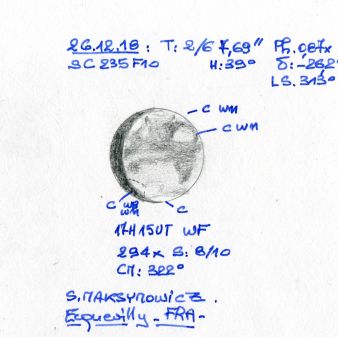 26.12.18 : T: 2/6 7,69" Ph. 087x
SC 235 F10 H: 39° δ: -262°
LS. 313°
C WM
C WM
C WB
WM
C
17H15UT WF
294x S: 8/10
CM: 322°
S. MAKSYMOWICZ.
Ecquevilly - FRA -